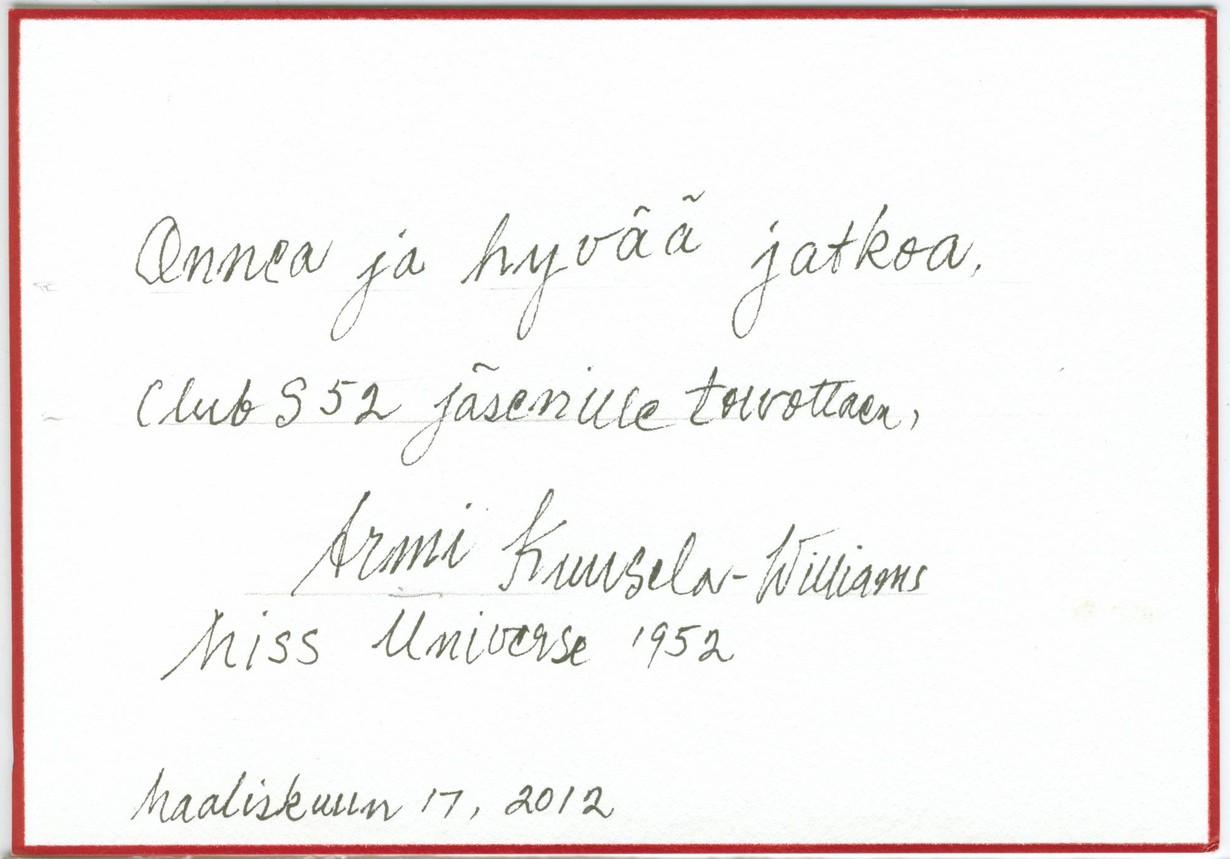 Onnea ja hyvää jatkoa,
Club S 52 jäsenille toivottaen,
Armi Kuusela-Williams
Miss Universe 1952
Maaliskuun 17, 2012